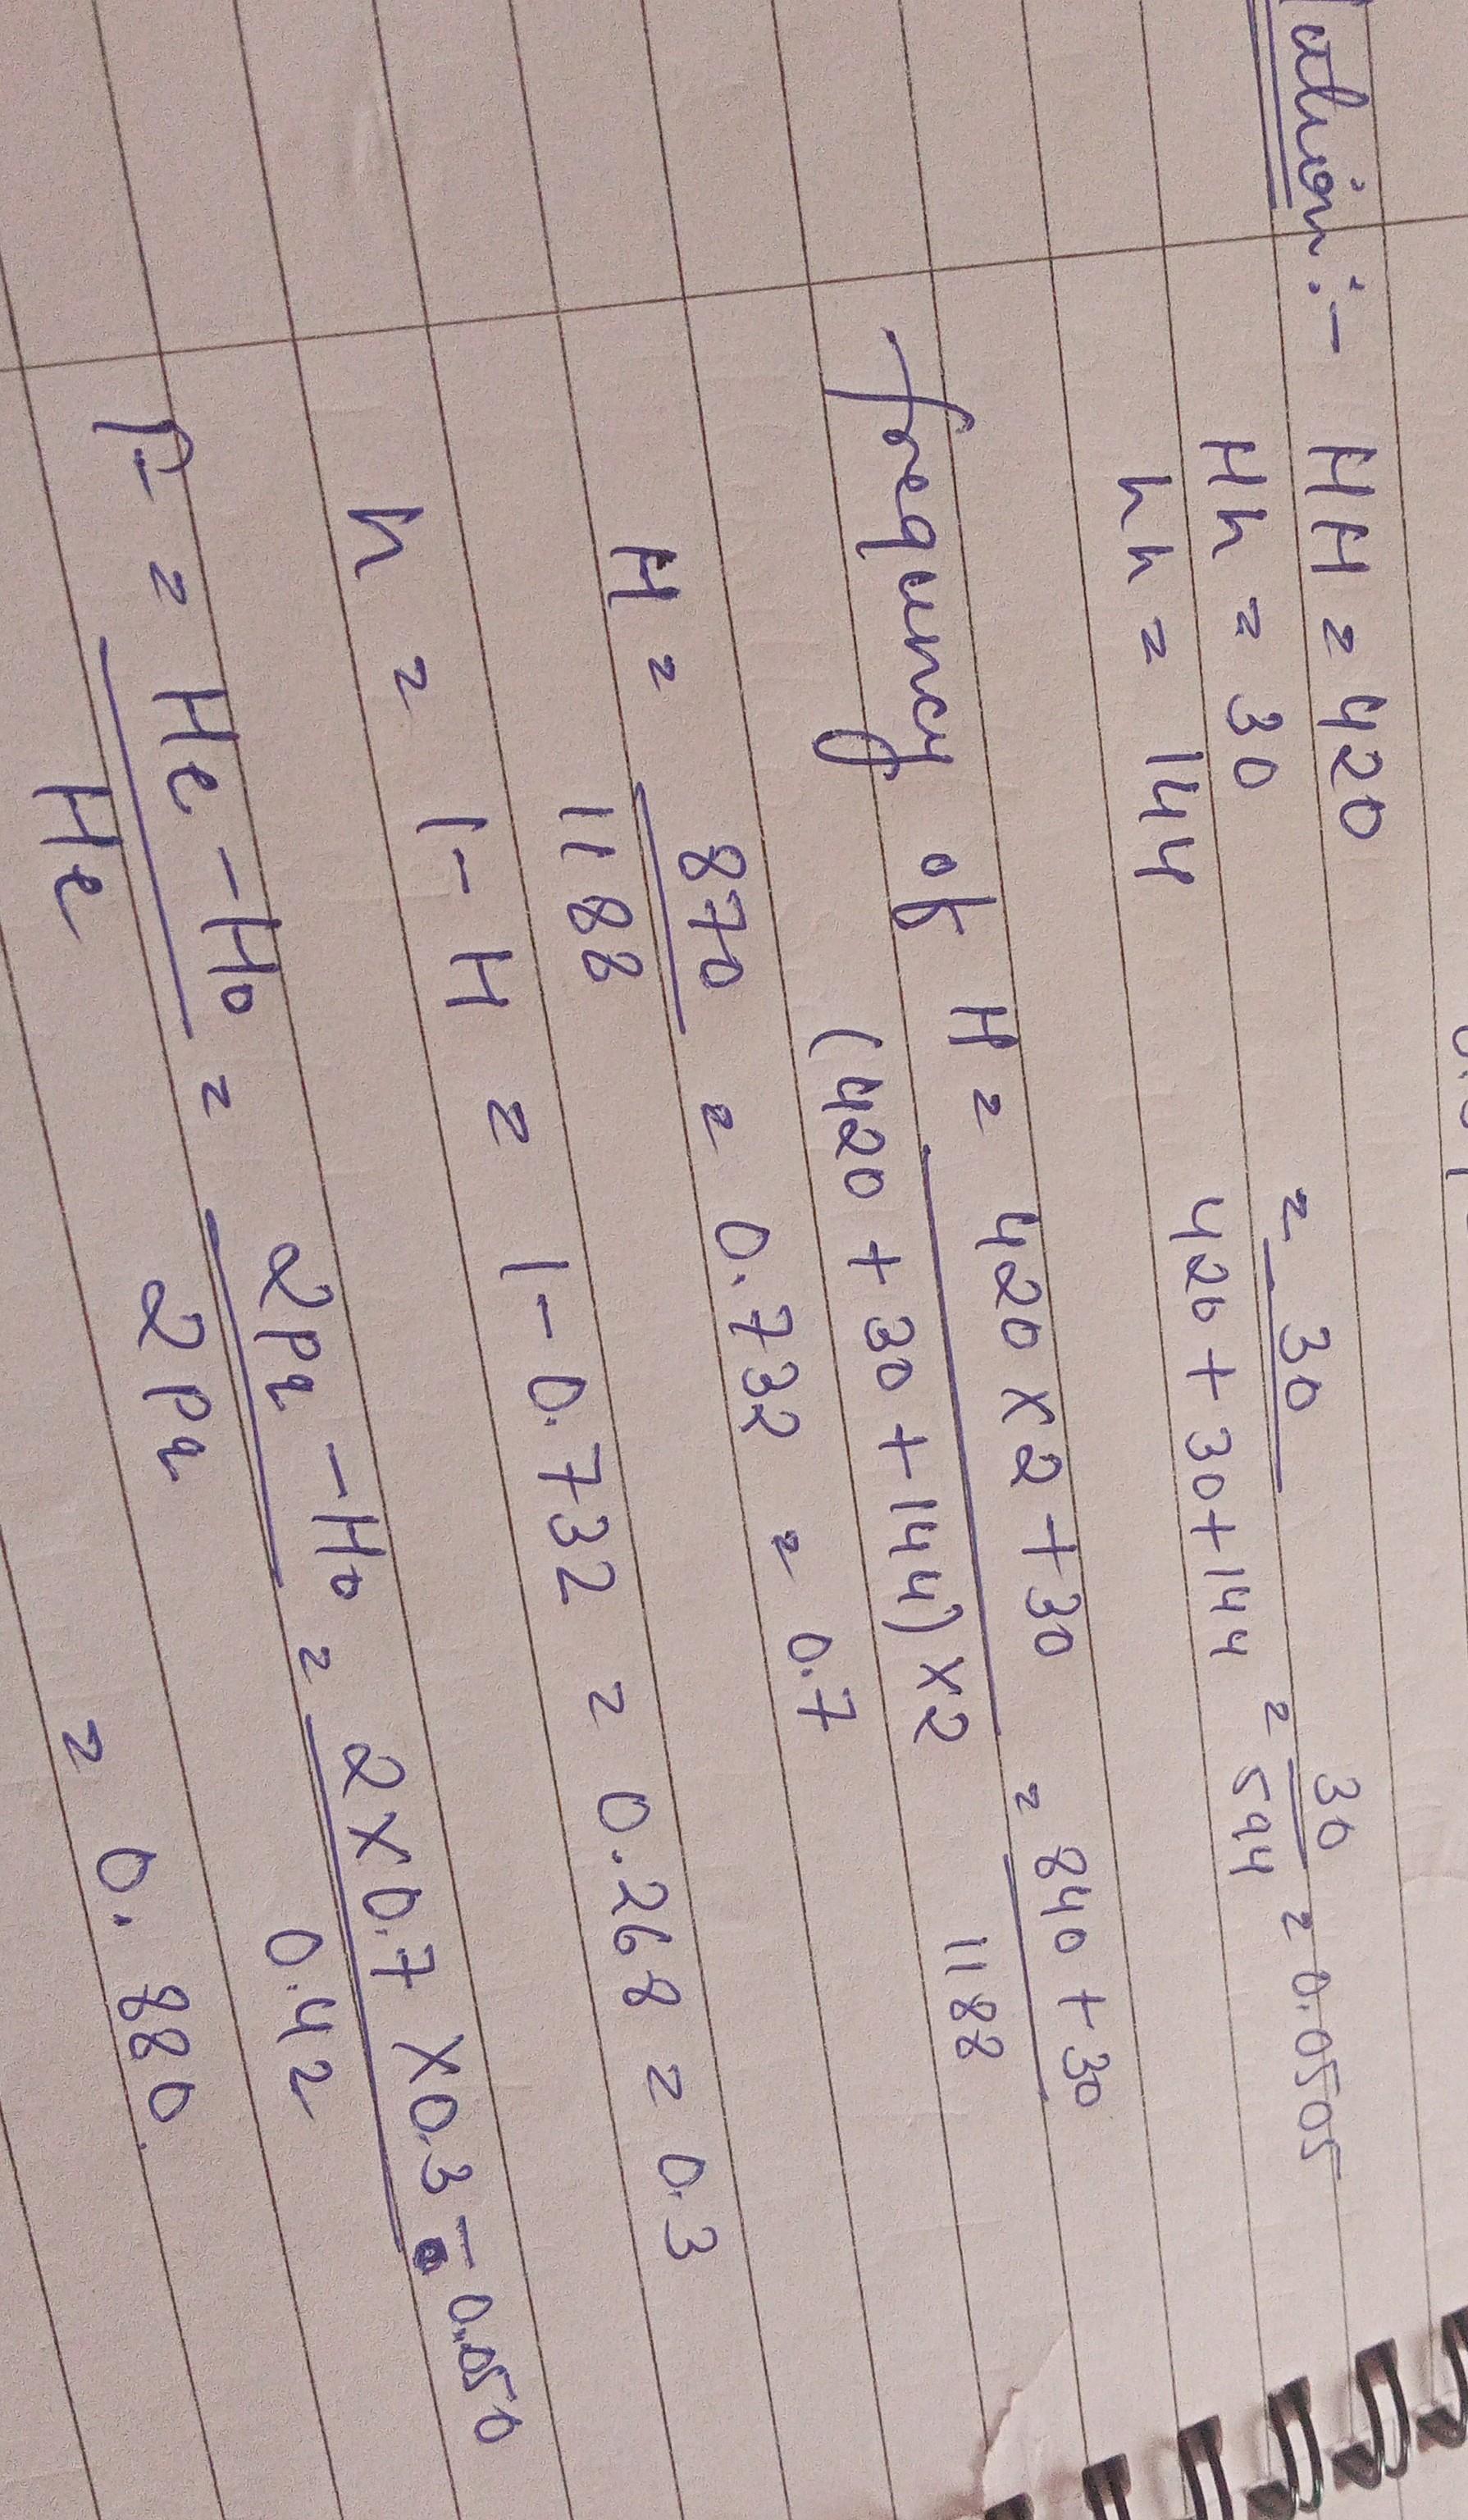 HH = 420
= 30
Hh = 30
420 + 30 + 144 = 30 / 594 = 0.0505
hh = 144
frequency of H = 420 x 2 + 30 / (420 + 30 + 144) x 2 = 840 + 30 / 1188
H = 870 / 1188 = 0.732 = 0.7
h = 1 - H = 1 - 0.732 = 0.268 = 0.3
F = He - Ho / He = 2pq - Ho / 2pq = 2 x 0.7 x 0.3 - 0.050 / 0.42
= 0.880